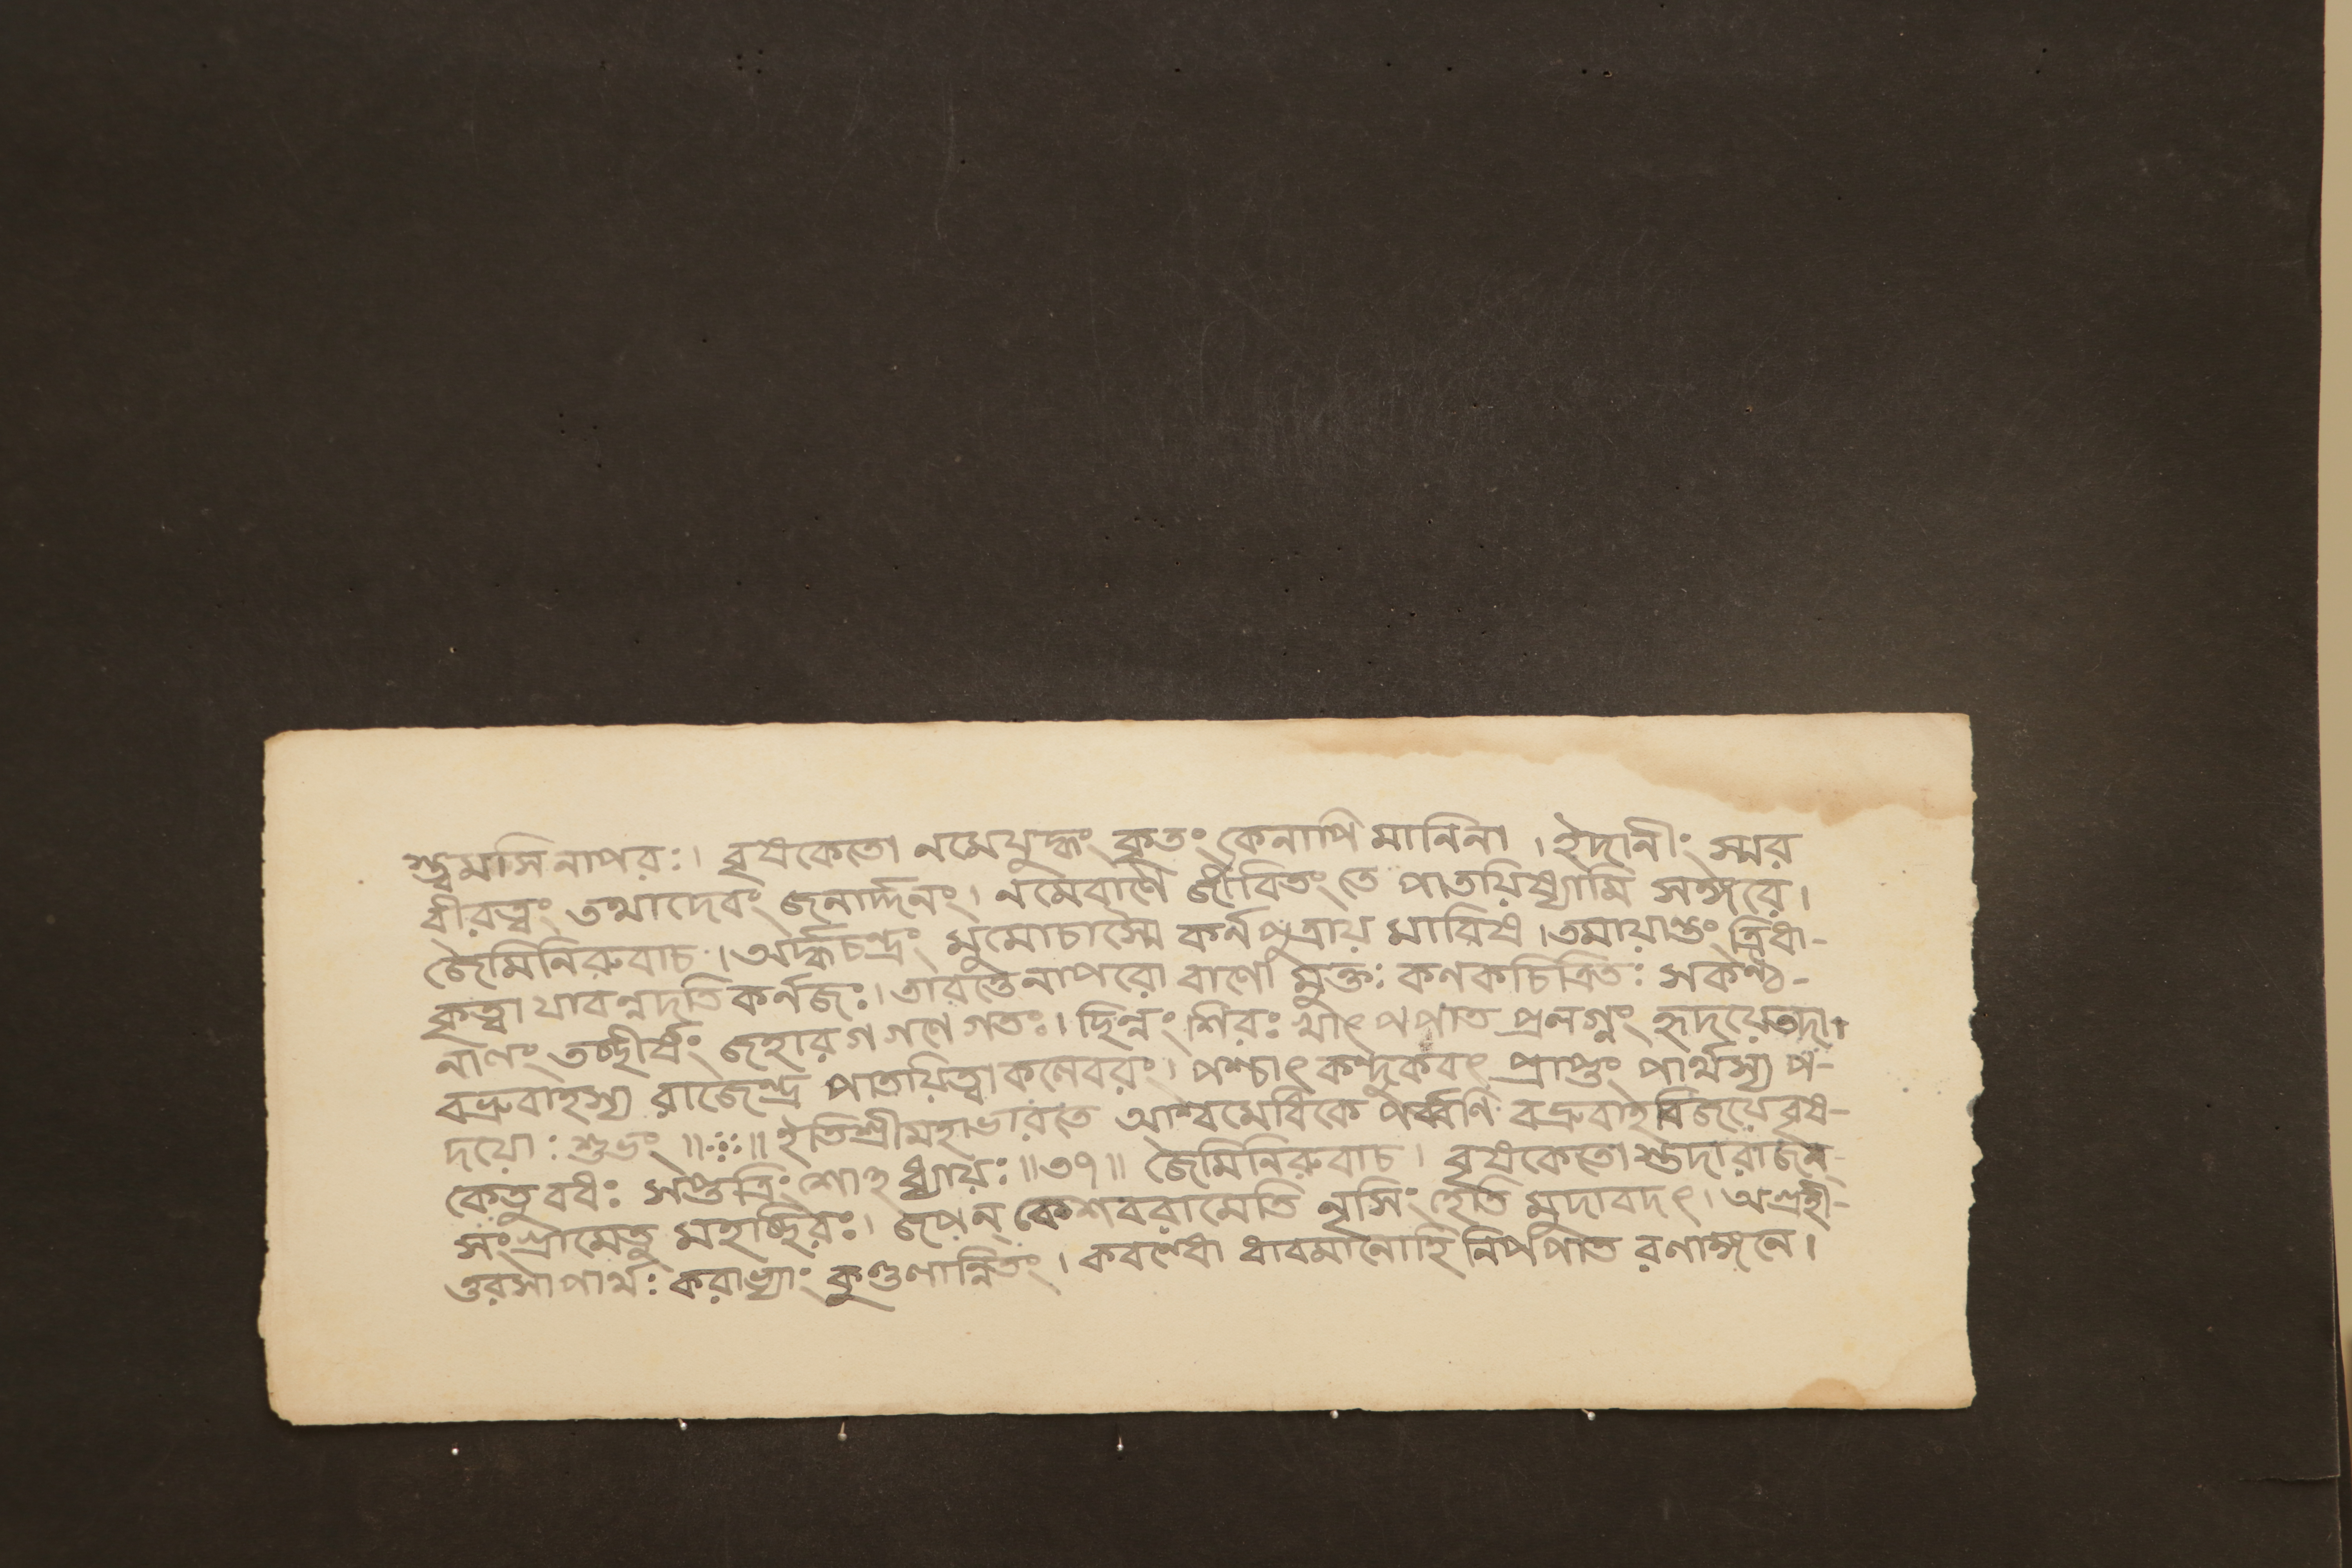 স্ত্বমসি নাপরঃ। বৃষকেতো নমেযুদ্ধং কৃতং কেনাপি মানিনা । ইদানীং স্মর
ধীরত্বং তথাদেবং জনার্দ্দনং। নমেবাণে জীবিতং তে পাতয়িষ্যামি সঙ্গরে।
জৈমিনিরুবাচ । অর্দ্ধচন্দ্রং মুমোচাস্মৈ কর্নপুত্রায় মারিষ । তমায়ান্তং ত্রিধা-
কৃত্বা যাবন্নদতি কর্নজঃ। তাবত্তেনাপরো বাণো মুক্তঃ কণকচিত্রিতঃ সকণ্ঠ-
নালং তচ্ছীর্ষং জহার গগণে গতঃ। ছিন্নং শিরঃ খাৎ পপাত প্রলগ্নং হৃদয়েতদা।
বভ্রুবাহস্য রাজেন্দ্র পাতয়িত্বা কলেবরং। পশ্চাৎ কন্দুকবৎ প্রাপ্তং পার্থস্য প-
দয়োঃ শুভং ॥ ইতিশ্রীমহাভারতে আশ্বমেধিকে পর্ব্বণি বভ্রুবাহবিজয়েবৃষ-
কেতুবধঃ সপ্তত্রিংশোঽধ্যায়ঃ ॥৩৭॥ জৈমিনিরুবাচ । বৃষকেতো স্তদারাজন্
সংগ্রামেতু মহচ্ছিরঃ। জপন্ কেশবরামেতি নৃসিংহেতি মুদাবদৎ। অগ্রহী-
ত্তরসাপার্থঃ করাভ্যাং কুণ্ডলান্বিতং । কবন্ধো ধাবমানোহি নিপপাত রণাঙ্গনে।